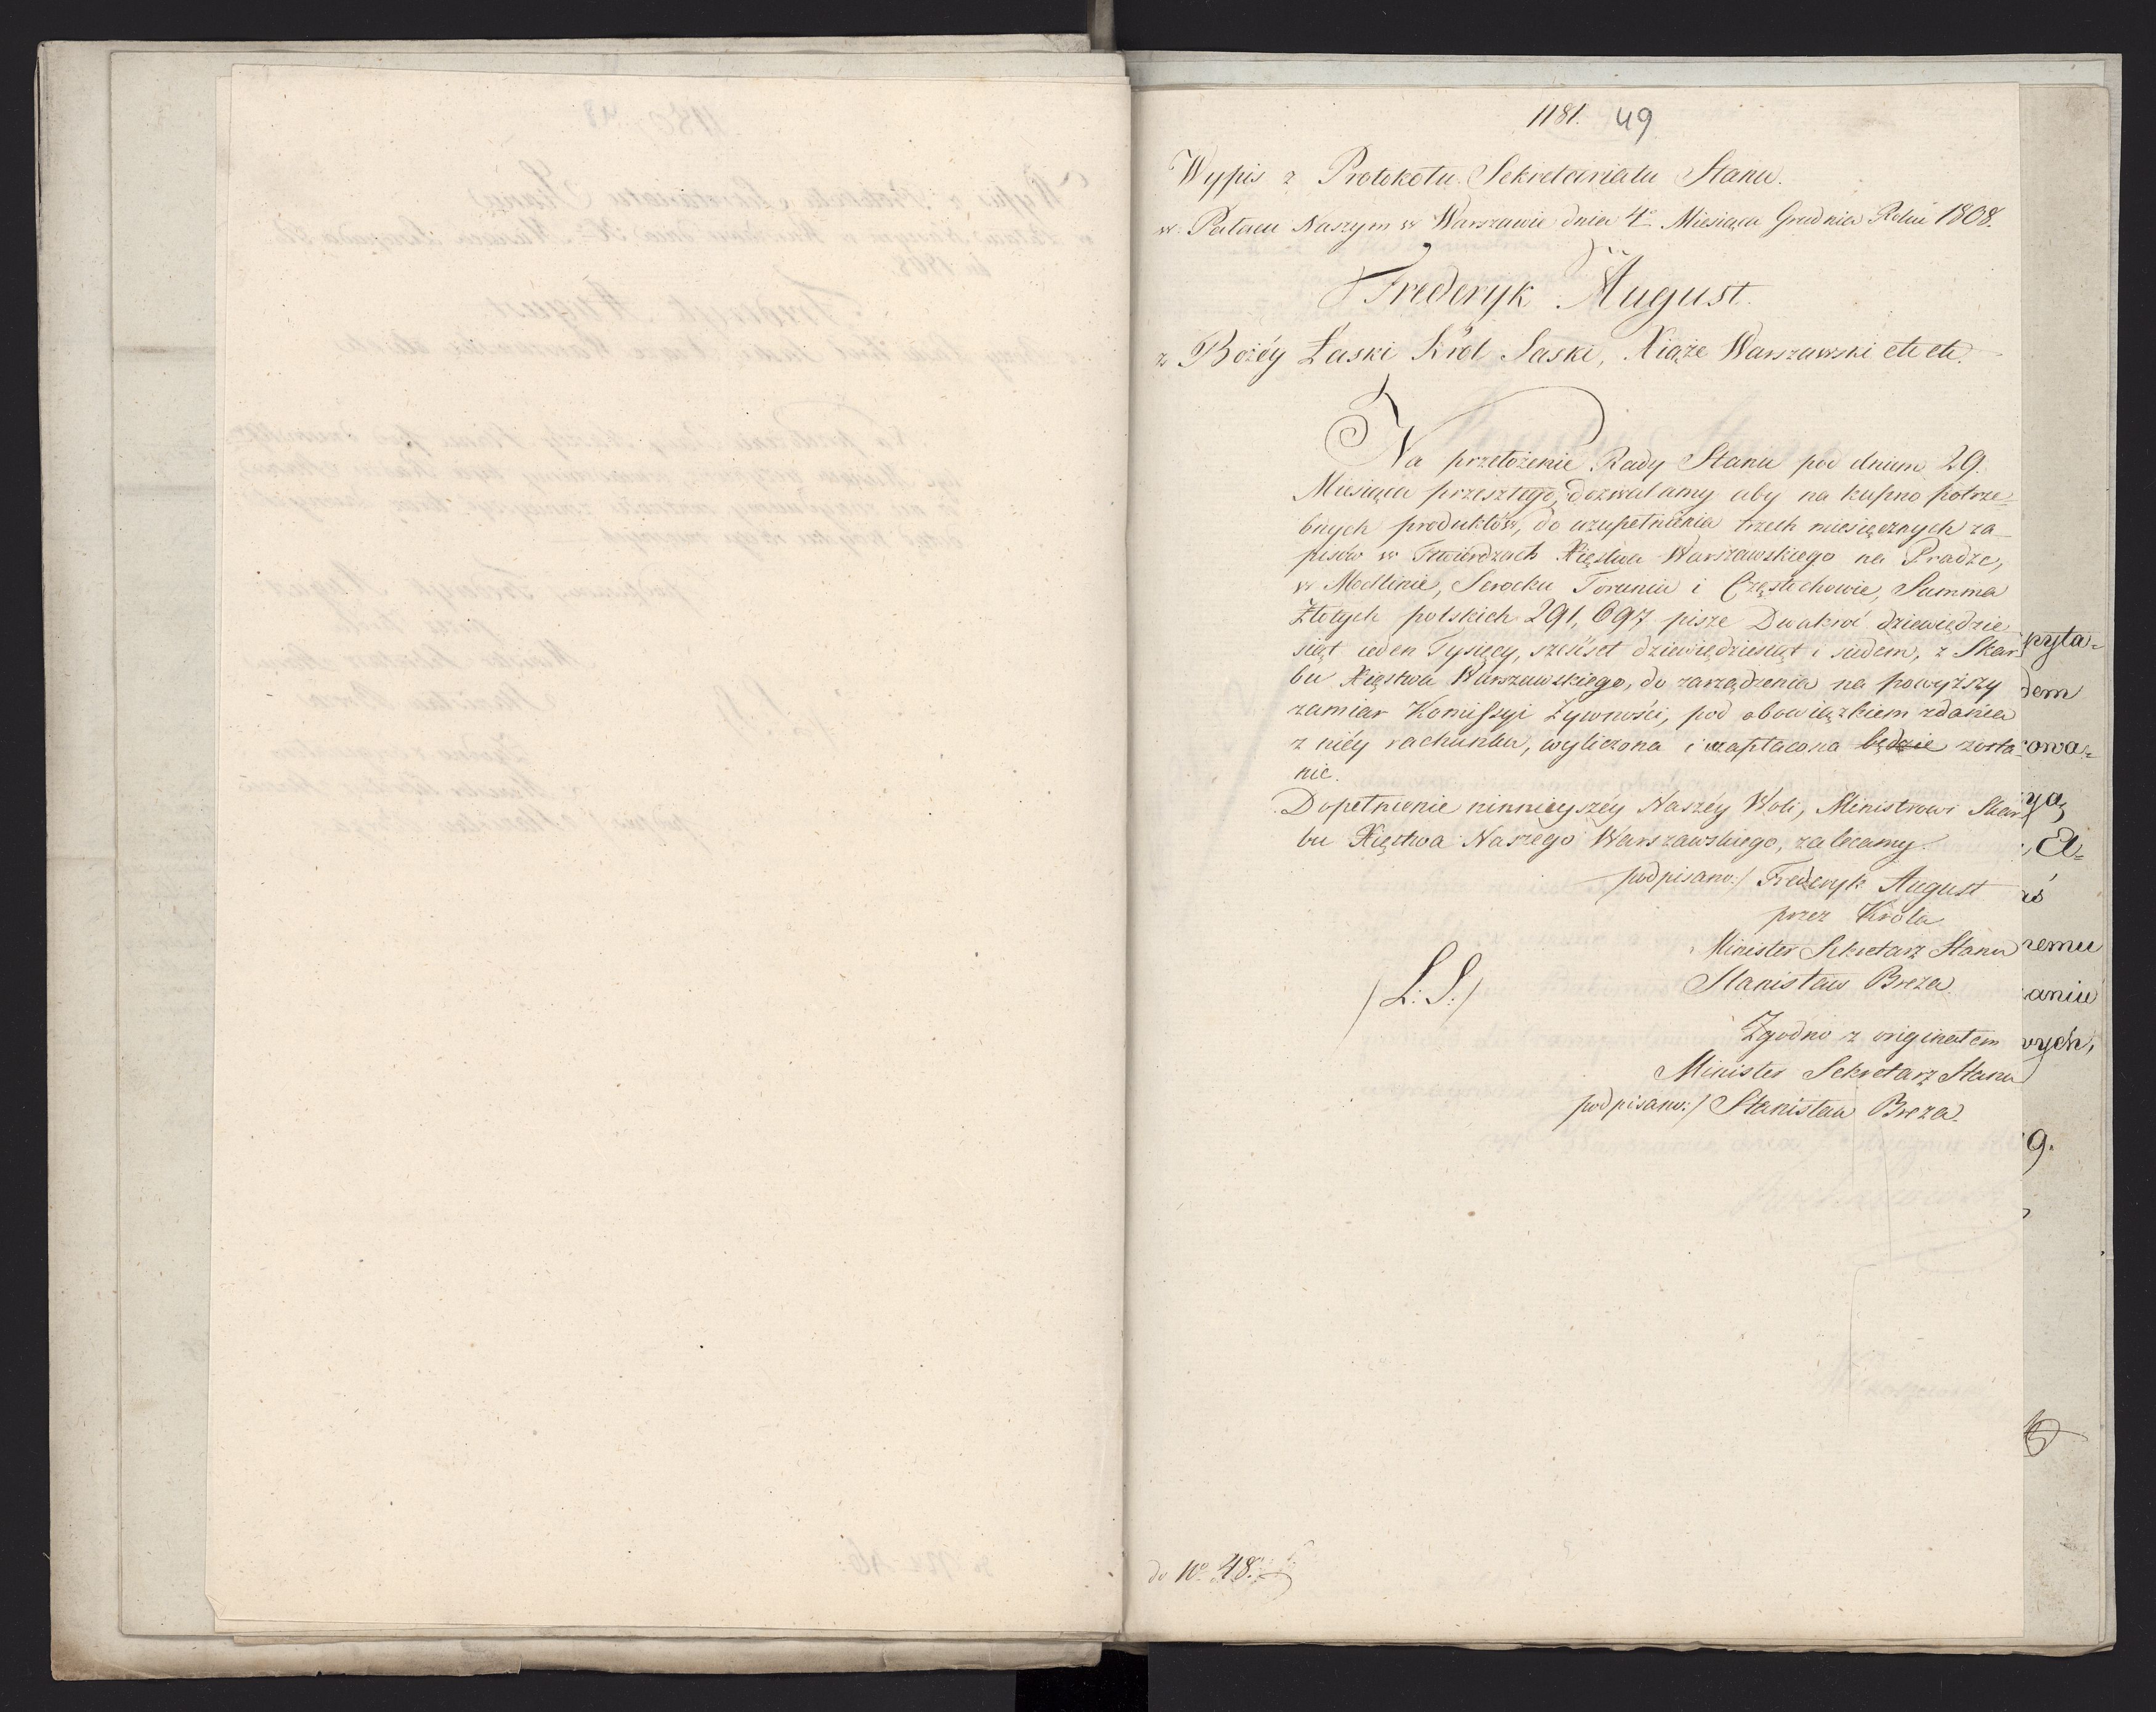 1181. 49
Wypis z Protokołu Sekretariatu Stanu.
w Pałacu Naszym w Warszawie dnia 4º Miesiąca Grudnia Roku 1808.
Frederyk August.
z Bożéy Łaski Król Saski, Xiąże Warszawski etc etc.
Na przełożenie Rady Stanu pod dniem 29.
Miesiąca przeszłego, dozwalamy aby na kupno potrze=
bnych produktów, do uzupełnienia trzech miesięcznych za-
pisów w Twierdzach Xięstwa Warszawskiego na Pradze,
w Modlinie, Serocku Toruniu i Częstochowie, Summa
Złotych polskich 291,697 pisze Dwakroć dziewiędzie
siąt ieden Tysięcy, sześćset dziewiędziesiąt i siedem, z Skar
bu Xięstwa Warszawskiego, do zarządzenia na powyższy
zamiar Komissyi Żywności, pod obowiązkiem zdania
z niéy rachunku, wyliczona i zapłacona będzie zosta
nie.
Dopełnienie ninnieyszéy Naszéy Woli, Ministrowi Skar
bu Xięstwa Naszego Warszawskiego, zalecamy.
podpisano:/ Frederyk August
przez Króla
Minister Sekretarz Stanu
/L:S:/ Stanisław Breza
Zgodno z originałem
Minister Sekretarz Stanu
podpisano:/ Stanisław Breza.
do Nº 48.
kyta=
dem
owa=
ya,
remu
aniu
wych,
9.